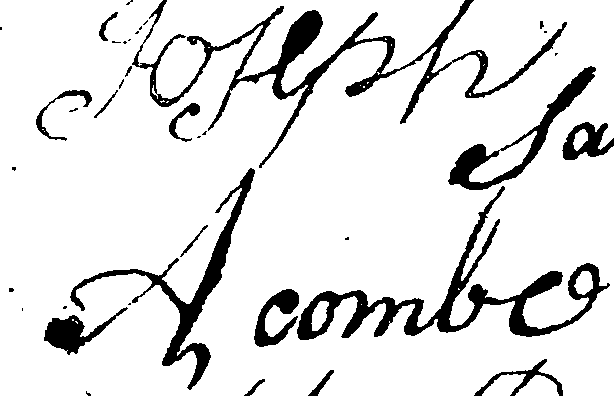 Joseph
Sa
Acombe